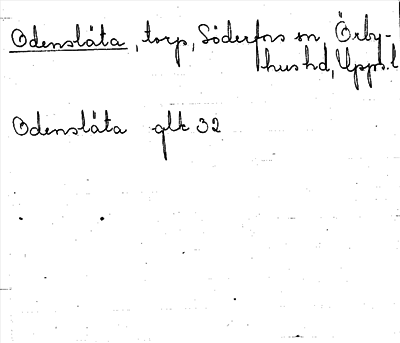 Odenslåta, torp, Söderfors sn Örby-
hus hd, Upps. l
Odenslåta glk 32